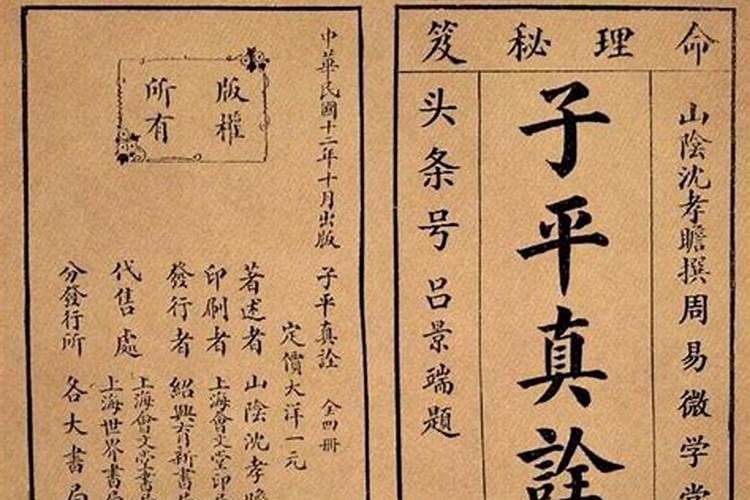 命理秘笈
山陰沈孝瞻撰周易微学堂
子平真詮
头条号 呂景端題
版權
所有
中華民國十二年十月出版
子平真詮 全四冊
定價大洋一元
著述者 山陰沈孝瞻
印刷者 上海會文堂印
發行者 紹興育新書
代售處 上海會文堂書局
上海世界書局
分發行所 各大書局